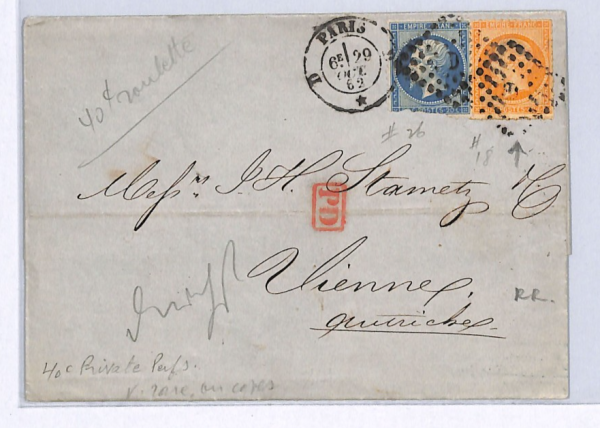 PARIS
6E 29
OCT.
62
D
EMPIRE FRANC
POSTES 20c
D
EMPIRE FRANC
40¢ roulette
# 26
# 18
Messrs J. H. Stametz & C
PD
Vienne
autriche
RR.
40c Private Perfs.
v. rare, on cover